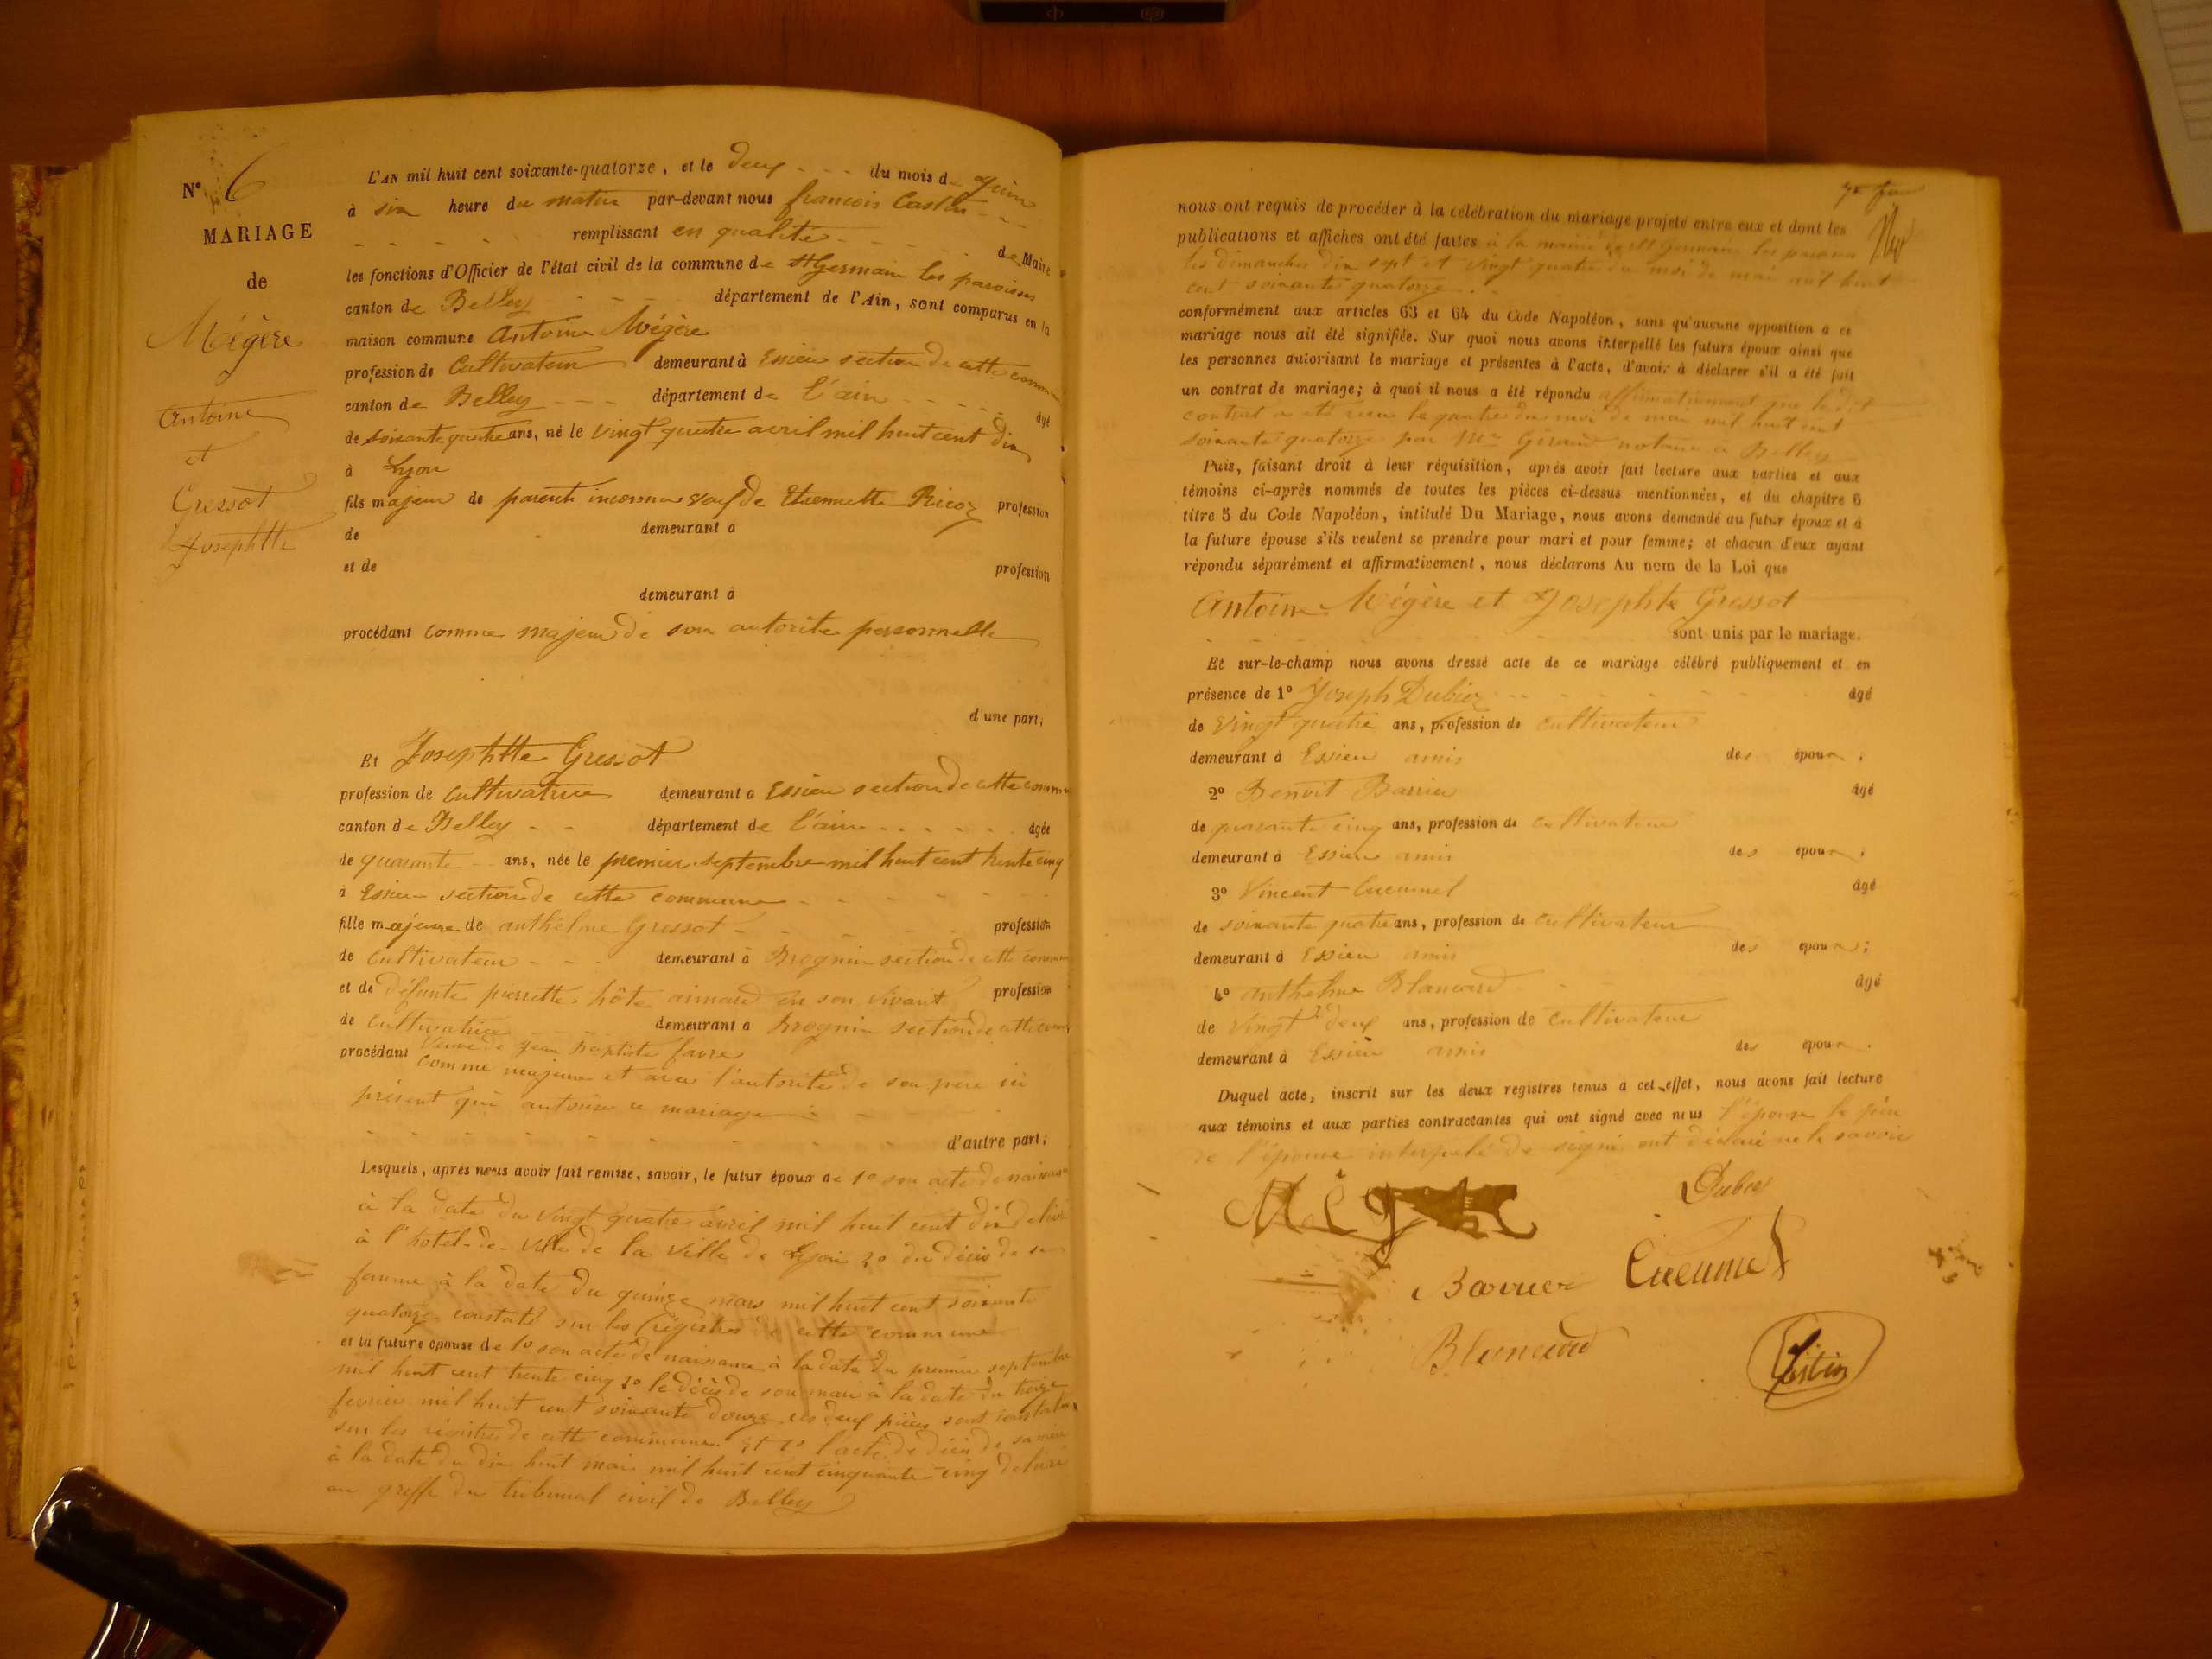 N° 6
MARIAGE
de
Mégère
Antoine
et
Gressot
Josephtte
L'AN mil huit cent soixante-quatorze, et le deux du mois d juin
à six heure du matin par-devant nous francois Castin
remplissant en qualité de Maire
les fonctions d'Officier de l'état civil de la commune de St Germain les paroisses
canton de Belley département de l'Ain, sont comparus en la
maison commune Antoine Mégère
profession de Cultivateur demeurant à Essieu section de cette commune
canton de Belley département de l'ain âgé
de soixante quatre ans, né le vingt quatre avril mil huit cent dix
à Lyon
fils majeur de parents inconnus veuf de Etiennette Ricoz profession
de demeurant à
et de profession
demeurant à
procédant comme majeur de son autorité personnelle
d'une part;
Et Josephtte Gressot
profession de cultivatrice demeurant à Essieu section de cette commune
canton de Belley département de l'ain âgée
de quarante ans, née le premier septembre mil huit cent trente cinq
à Essieu section de cette commune
fille majeure de anthelme Gressot profession
de Cultivateur demeurant à Brognin section de cette commune
et de défunte pierrette hôte aimard en son vivant profession
de Cultivatrice demeurant à Brognin section de cette commune
procédant Veuve de jean baptiste favre
comme majeure et avec l'autorité de son père ici
présent qui autorise ce mariage
d'autre part;
Lesquels, après nous avoir fait remise, savoir, le futur époux de 1° son acte de naissance
à la date du vingt quatre avril mil huit cent dix délivré
à l'hotel-de-Ville de la Ville de Lyon 2° du décès de sa
femme à la date du quinze mars mil huit cent soixante
quatorze constaté sur les régistres de cette commune
et la future épouse de 1° son acte de naissance à la date du premier septembre
mil huit cent trente cinq 2° le décès de son mari à la date du treize
fevrier mil huit cent soixante douze ces deux pièces sont constatées
sur les régistres de cette commune. Et 3° l'acte de décès de sa mère
à la date du dix huit mai mil huit cent cinquante cinq délivré
au greffe du tribunal civil de Belley
nous ont requis de procéder à la célébration du mariage projeté entre eux et dont les
publications et affiches ont été faites à la mairie de St Germain les paroisses
les dimanches dix sept et vingt quatre du mois de mai mil huit
cent soixante quatorze.
conformément aux articles 63 et 64 du Code Napoléon, sans qu'aucune opposition à ce
mariage nous ait été signifiée. Sur quoi nous avons interpellé les futurs époux ainsi que
les personnes autorisant le mariage et présentes à l'acte, d'avoir à déclarer s'il a été fait
un contrat de mariage; à quoi il nous a été répondu affirmativement que le dit
contrat a été recu le quatre du moi de mai mil huit cent
soixante quatorze par Me Géraud notaire à Belley
Puis, faisant droit à leur réquisition, après avoir fait lecture aux parties et aux
témoins ci-après nommés de toutes les pièces ci-dessus mentionnées, et du chapitre 6
titre 5 du Code Napoléon, intitulé Du Mariage, nous avons demandé au futur époux et à
la future épouse s'ils veulent se prendre pour mari et pour femme; et chacun d'eux ayant
répondu séparément et affirmativement, nous déclarons Au nom de la Loi que
Antoine Mégère et Josephte Gressot
sont unis par le mariage.
Et sur-le-champ nous avons dressé acte de ce mariage célébré publiquement et en
présence de 1° Joseph Dubiez âgé
de Vingt quatre ans, profession de cultivateur
demeurant à Essieu amis des époux;
2° Benoit Barrier âgé
de quarante cinq ans, profession de cultivateur
demeurant à Essieu amis des époux;
3° Vincent Cucumel âgé
de soixante quatre ans, profession de cultivateur
demeurant à Essieu amis des époux;
4° anthelme Blancard âgé
de vingt deux ans, profession de cultivateur
demeurant à Essieu amis des époux.
Duquel acte, inscrit sur les deux registres tenus à cet effet, nous avons fait lecture
aux témoins et aux parties contractantes qui ont signé avec nous l'épouse le père
de l'épouse interpelé de signé ont déclaré ne le savoir
Dubiez
Barrier Cucumel
Blancard
Castin